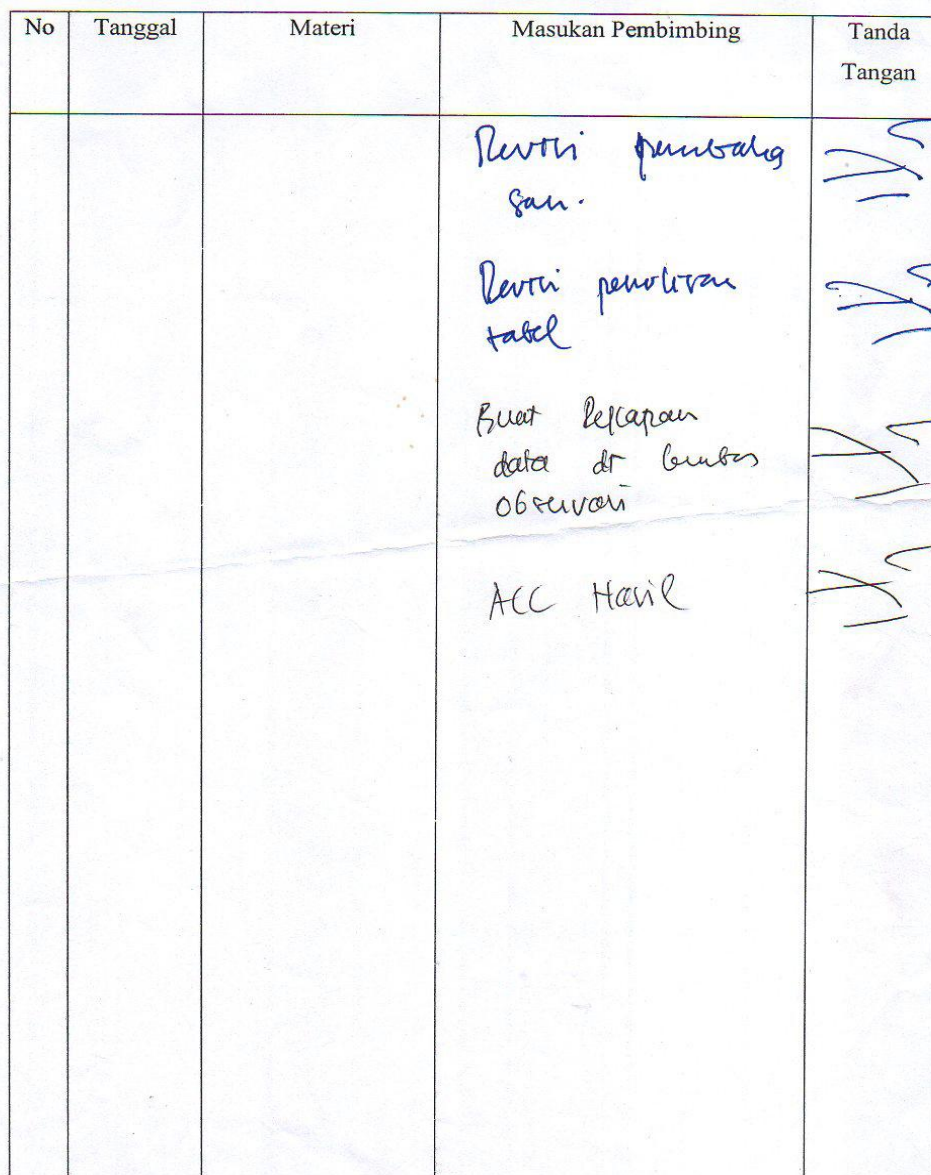 No Tanggal Materi Masukan Pembimbing Tanda
Tangan
Revisi pembaha
san.
Revisi penulisan
tabel
Buat Rekapan
data dr lembar
observasi
ACC Hasil